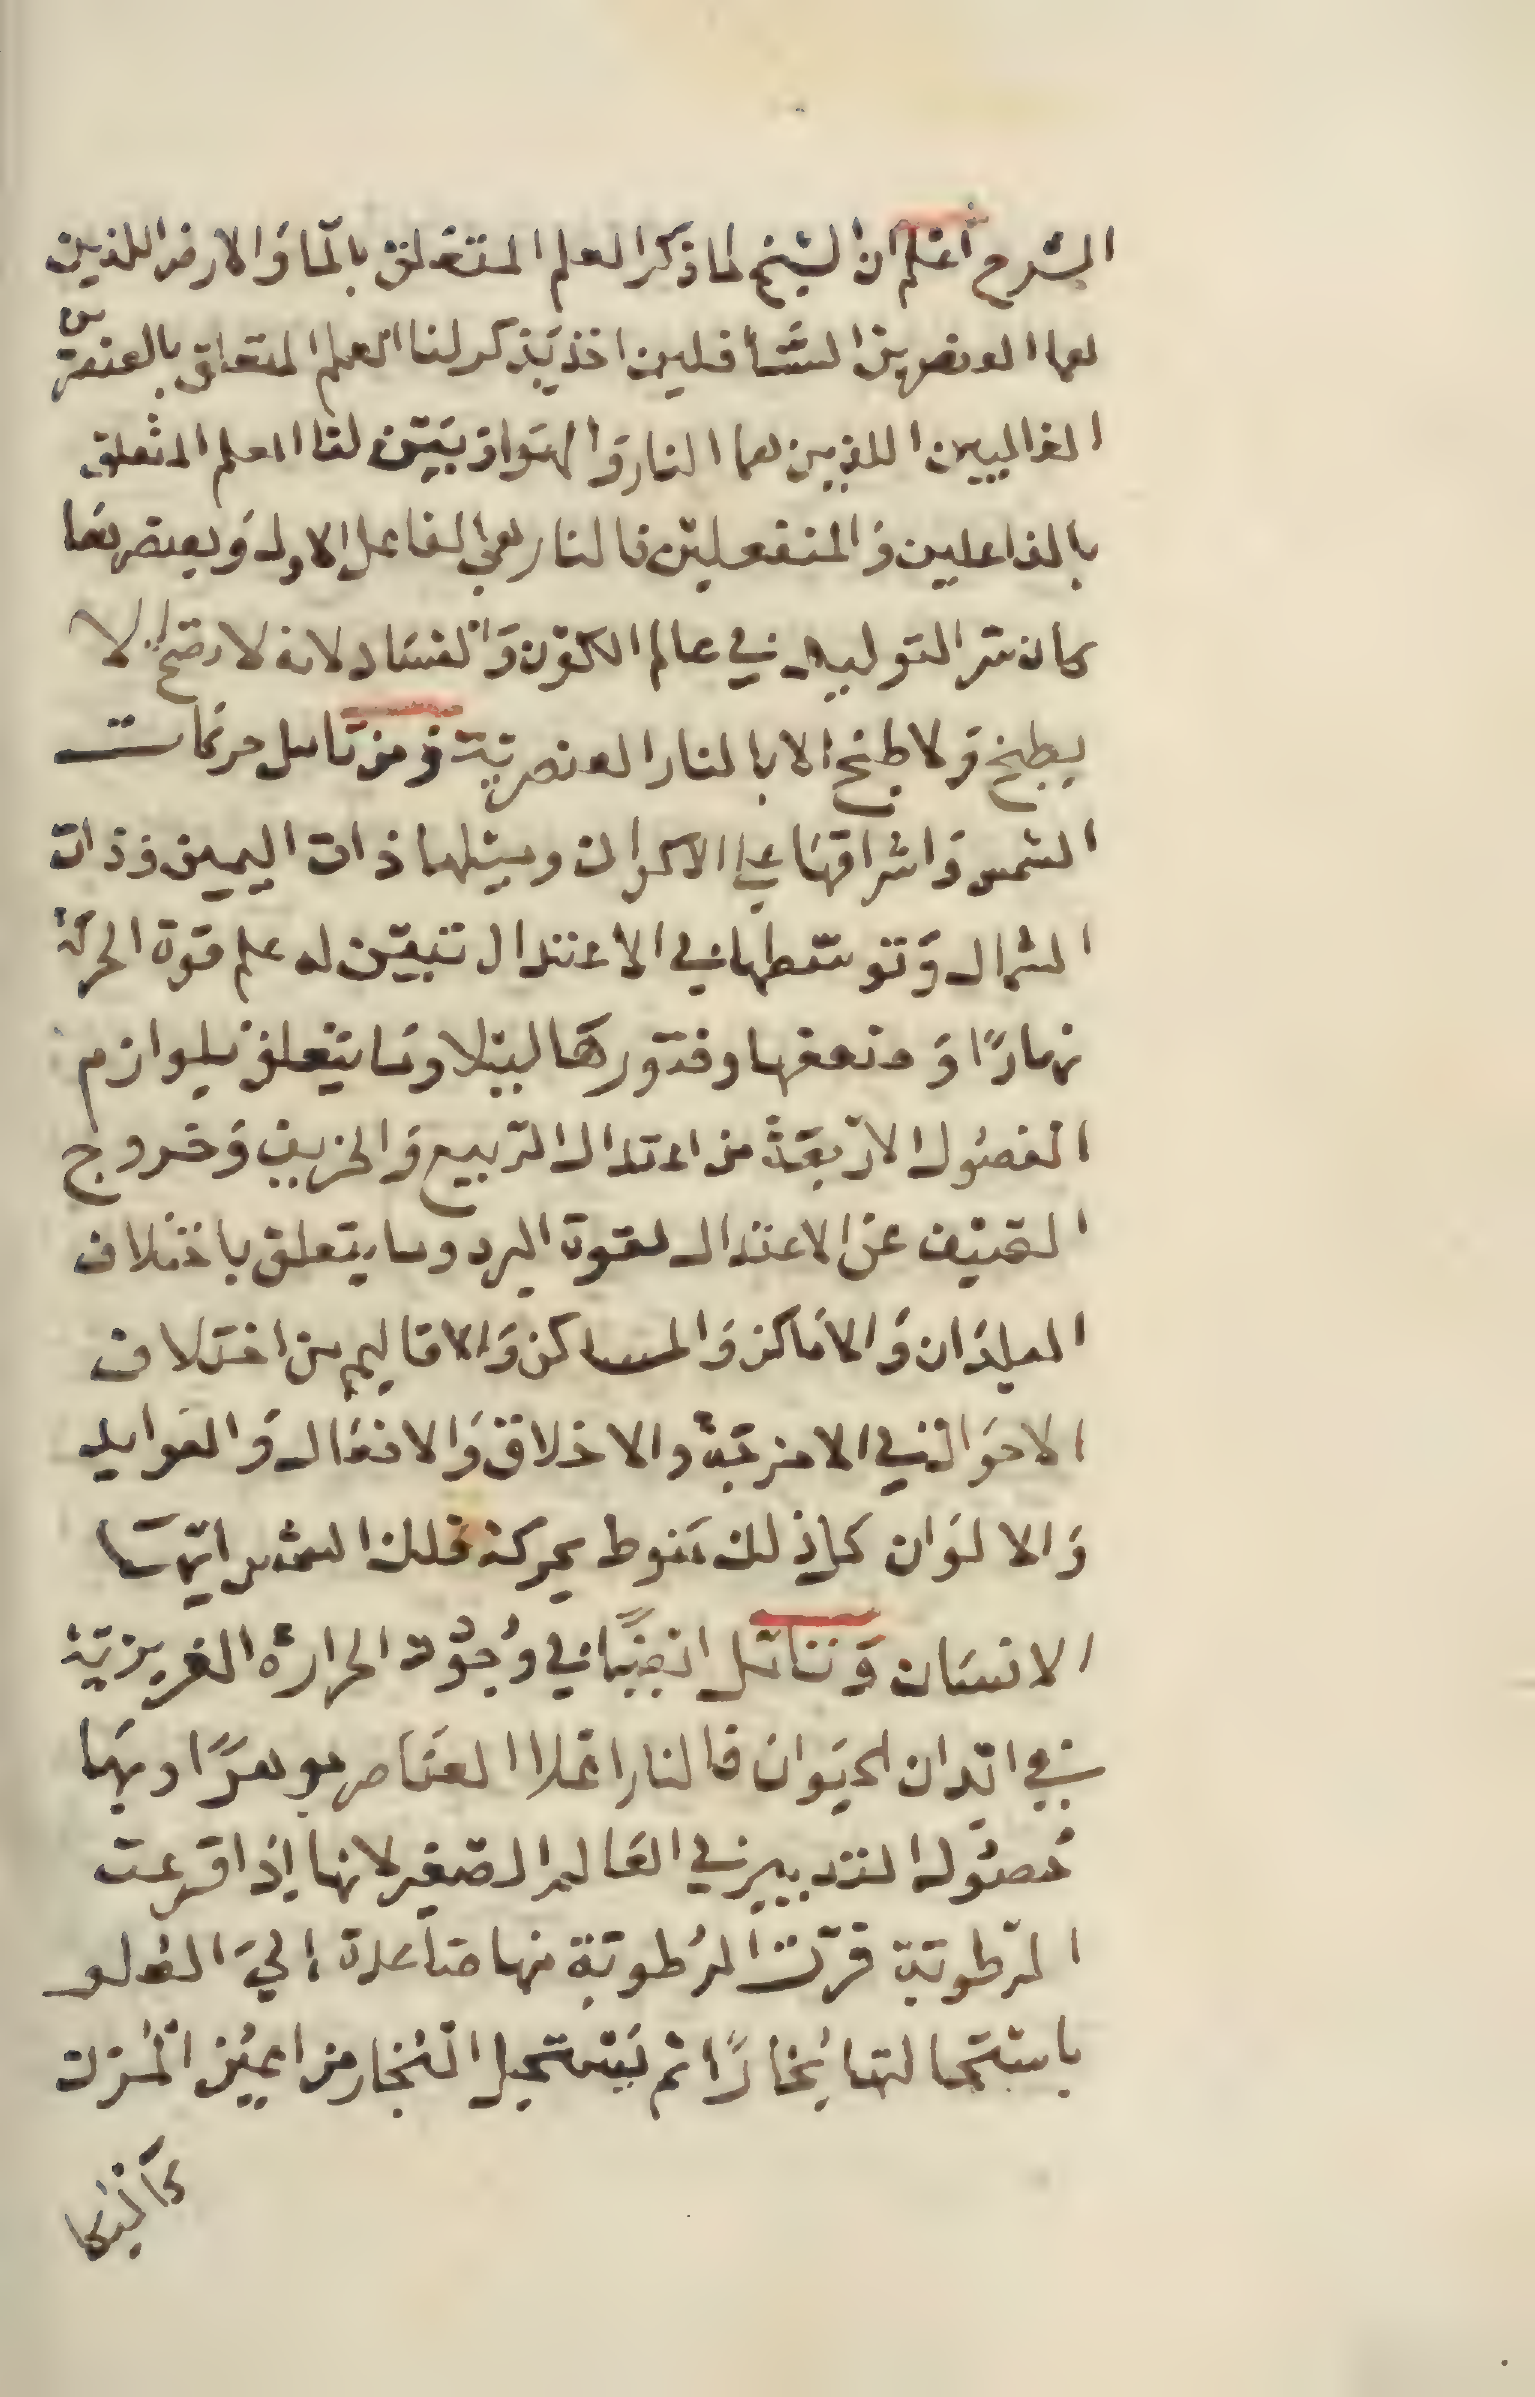 الشرح اعلم ان الشيخ لما ذكر العلم المتعلق بالما والارض اللذين
هما العنصرين السافلين اخذ يذكر لنا العلم المتعلق بالعنصرين
العاليين اللذين هما النار والهوا وبين لنا العلم المتعلق
بالفاعلين والمنفعلين فالنار هي الفاعل الاول وبعنصرها
كان سر التوليد في عالم الكون والفساد لانه لا نضج الا
بطبخ ولا طبخ الا بالنار العنصرية ومن تامل حركات
الشمس واشراقها علي الاكوان وميلها ذات اليمين وذات
الشمال وتوسطها في الاعتدال تبين له علم قوة الحركة
نهارًا وضعفها وفتورها ليلا وما يتعلق بلوازم
الفصول الاربعة من اعتدال الربيع والخريف وخروج
الصيف عن الاعتدال لقوة البرد وما يتعلق باختلاف
البلدان والاماكن والمساكن والاقاليم من اختلاف
الاحوال في الامزجة والاخلاق والافعال والعوايد
والالوان كل ذلك منوط بحركة فلك الشمس ايها
الانسان وتامل ايضًا في وجود الحرارة الغريزية
في ابدان الحيوان فالنار اعلا العناصر جوهرًا وبها
حصول التدبير في العالم الصغير لانها اذا قرعت
الرطوبة فرت الرطوبة منها صاعدة الي العلو
باستحالتها بخارًا ثم يستحيل البخار من اعين المزن
كما انها